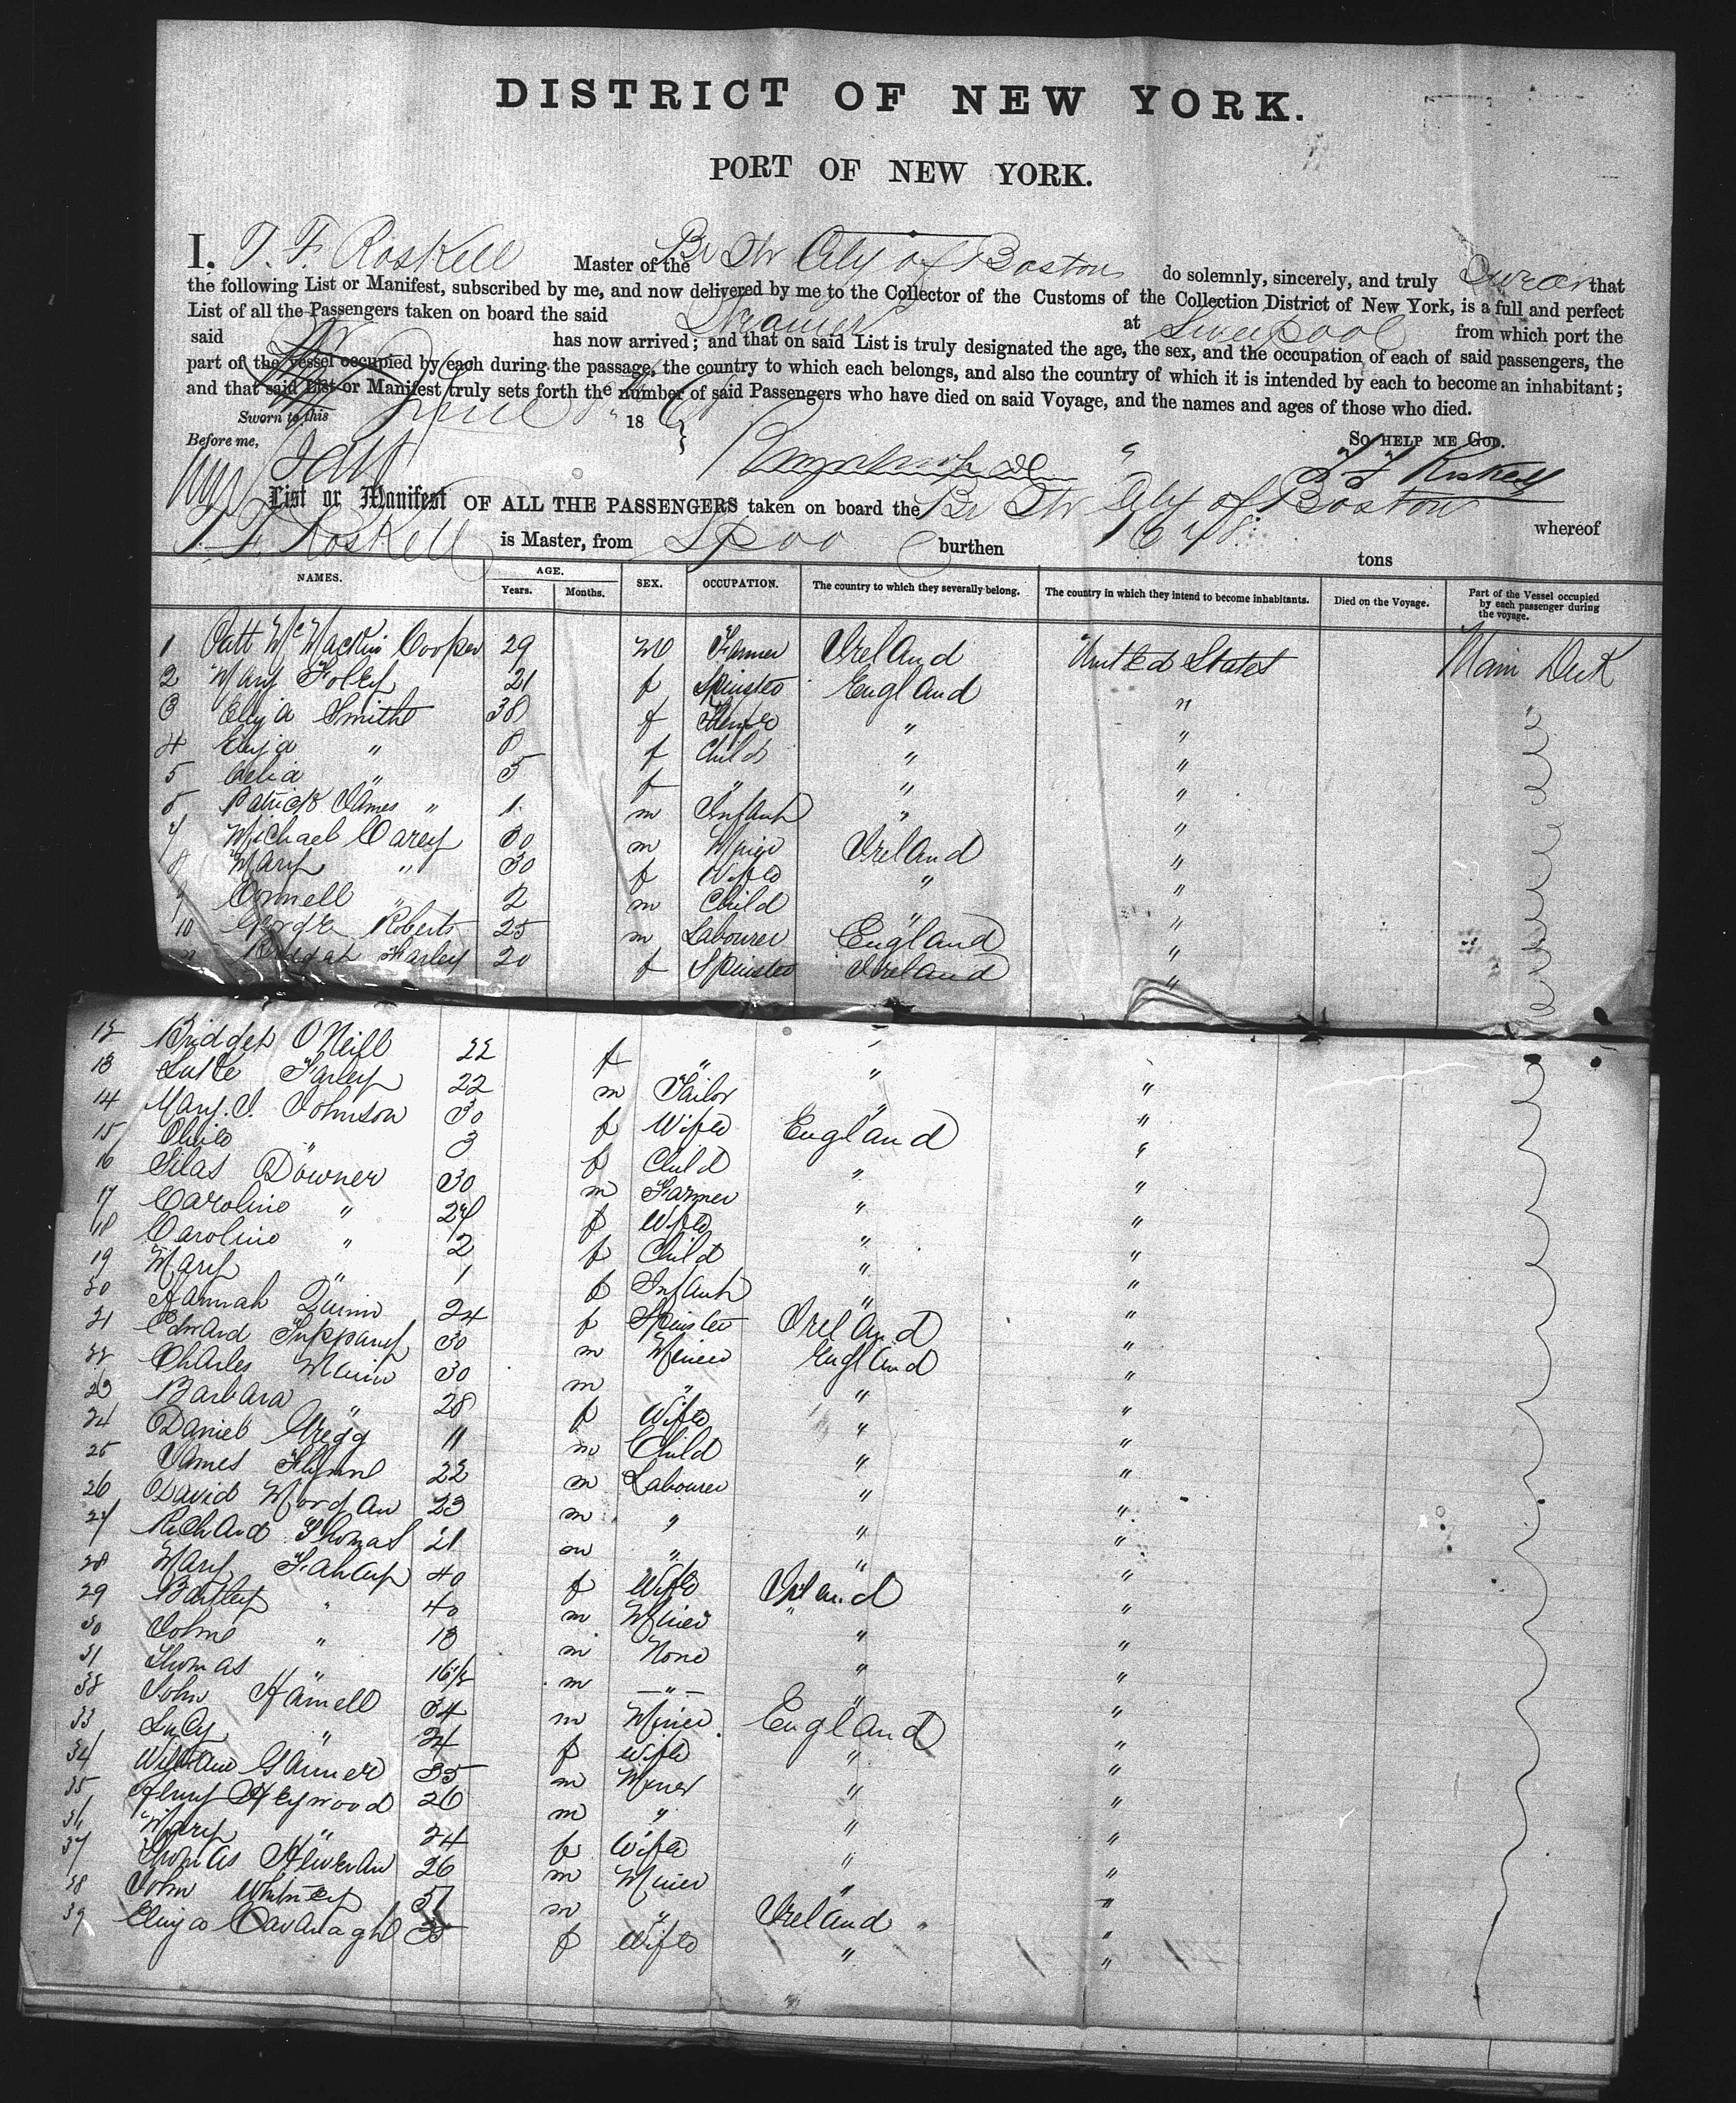 DISTRICT OF NEW YORK.
PORT OF NEW YORK.
I, T. F. Roskell Master of the Br Str City of Boston do solemnly, sincerely, and truly Swear that
the following List or Manifest, subscribed by me, and now delivered by me to the Collector of the Customs of the Collection District of New York, is a full and perfect
List of all the Passengers taken on board the said Steamer at Liverpool from which port the
said has now arrived; and that on said List is truly designated the age, the sex, and the occupation of each of said passengers, the
part of the vessel occupied by each during the passage, the country to which each belongs, and also the country of which it is intended by each to become an inhabitant;
and that said List or Manifest truly sets forth the number of said Passengers who have died on said Voyage, and the names and ages of those who died.
Sworn to this June 18
So help me God.
Before me,
T F Roskell
List or Manifest OF ALL THE PASSENGERS taken on board the Br Str City of Boston whereof
T. F. Roskell is Master, from Lpool burthen tons
NAMES. AGE. Years. Months. SEX. OCCUPATION. The country to which they severally belong. The country in which they intend to become inhabitants. Died on the Voyage. Part of the Vessel occupied by each passenger during the voyage.
1 Patt Cooper 29 m Farmer Ireland United States Main Deck
2 Mary Foley 21 f Spinster England "
3 Eliza Smith 38 f " "
4 Eliza " 8 f Child " "
5 Celia " 5 f " " "
6 Patrick James " 1 m Infant " "
7 Michael Carey 30 m Miner Ireland "
8 Mary " 30 f Wife " "
9 " 2 m Child " "
10 George Roberts 25 m Labourer England "
11 Bridget Farley 20 f Spinster Ireland "
12 Bridget O'Neill 22 f " "
13 Luke Farley 22 m Tailor " "
14 Mary J. Johnson 30 f Wife England "
15 Child " 3 f Child " "
16 Silas Downer 30 m Farmer " "
17 Caroline " 24 f Wife " "
18 Caroline " 2 f Child " "
19 Mary " 1 f Infant " "
20 Hannah Quinn 24 f Spinster Ireland "
21 Edward 30 m Miner England "
22 Charles 30 m " " "
23 Barbara " 28 f Wife " "
24 Daniel Gregg 11 m Child " "
25 James Flynne 22 m Labourer " "
26 David Morgan 23 m " " "
27 Richard Thomas 21 m " " "
28 Mary Fahey 40 f Wife Ireland "
29 Bartley " 40 m Miner " "
30 John " 18 m None " "
31 Thomas " m " " "
32 John Hamell 34 m Miner England "
33 Lucy " 24 f Wife " "
34 William 35 m Miner " "
35 Henry Heywood 26 m " " "
36 Mary " 24 f Wife " "
37 Thomas 26 m Miner " "
38 John Whitney m " Ireland "
39 Cavanagh 35 f Wife " "